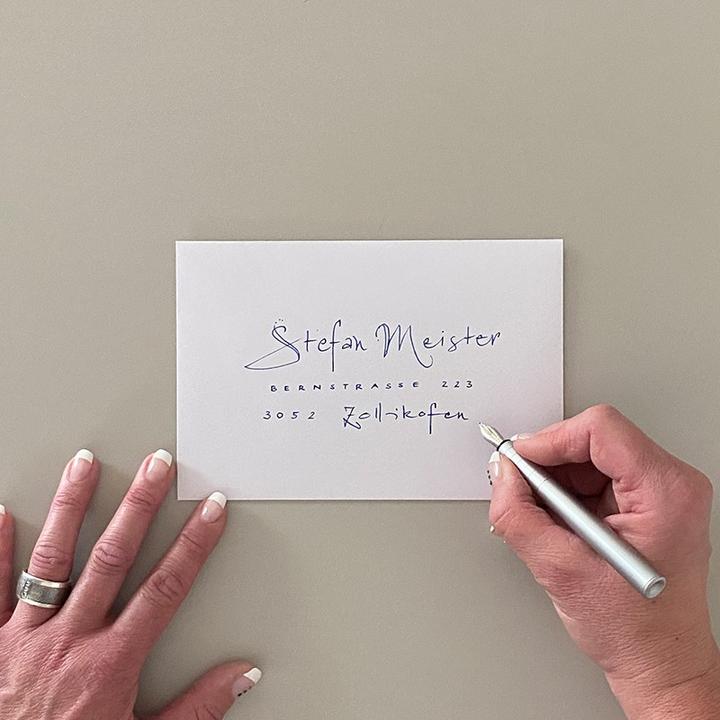 Stefan Meister
BERNSTRASSE 223
3052 Zollikofen